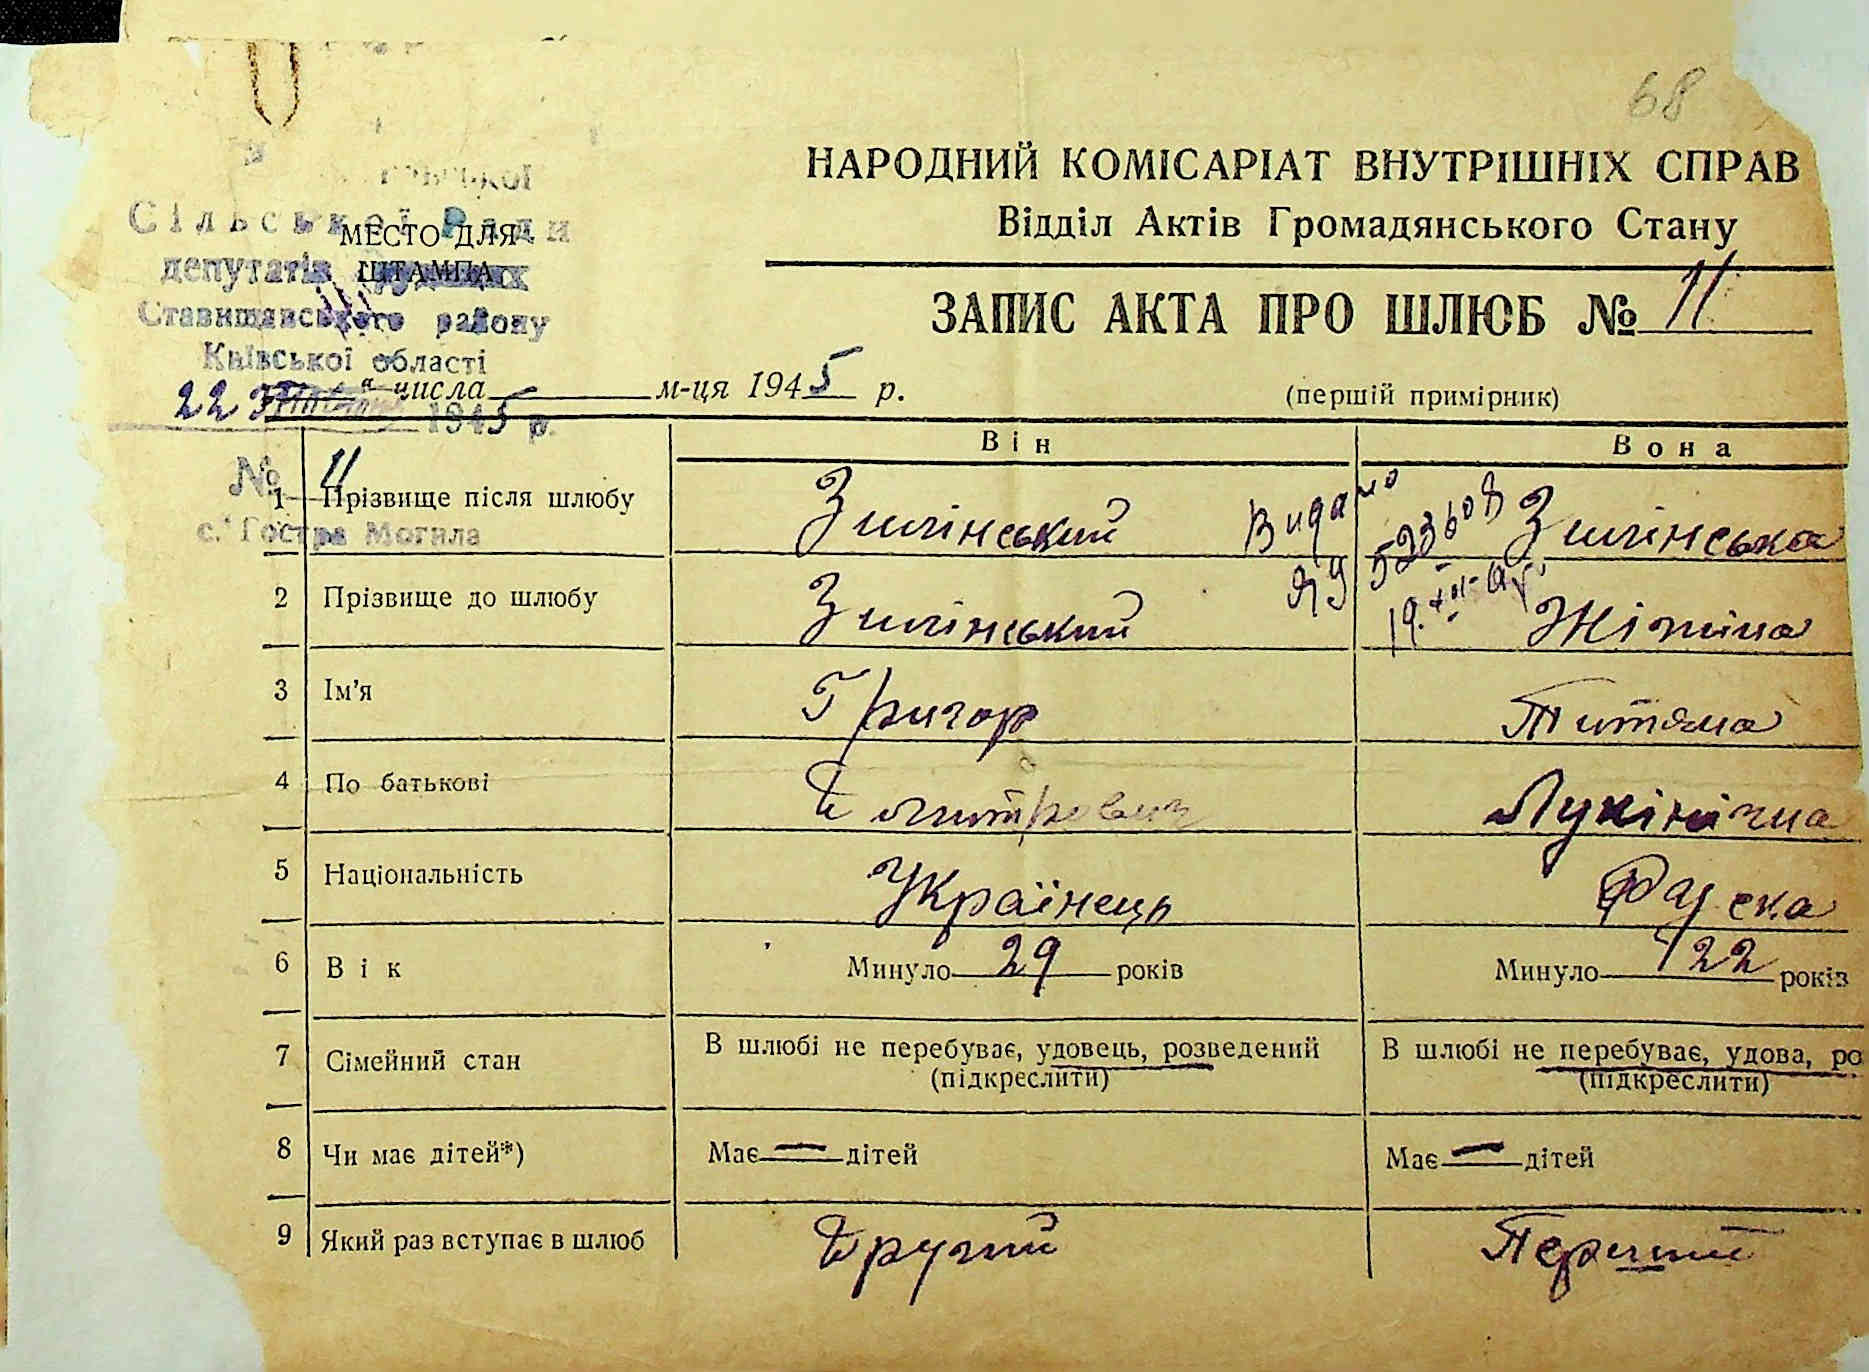 68
НАРОДНИЙ КОМІСАРІАТ ВНУТРІШНІХ СПРАВ
Відділ Актів Громадянського Стану
Сільської Ради
МЕСТО ДЛЯ
ШТАМПА
депутатів
Ставищанського району
Київської області
ЗАПИС АКТА ПРО ШЛЮБ № 11
22 " числа м-ця 1945 р.
(першій примірник)
1945 р.
№ 11
с. Гостра Могила
Він Вона
1 Прізвище після шлюбу Зилінський Видано Зилінська
ЯУ 523608
2 Прізвище до шлюбу Зилінський 19. Жіліна
3 Ім'я Григор Титяна
4 По батькові Дмитрович Лукінічна
5 Національність Українець Руска
6 Вік Минуло 29 років Минуло 22 років
7 Сімейний стан В шлюбі не перебуває, удовець, розведений В шлюбі не перебуває, удова, ро
(підкреслити) (підкреслити)
8 Чи має дітей*) Має — дітей Має — дітей
9 Який раз вступає в шлюб Другий Перший